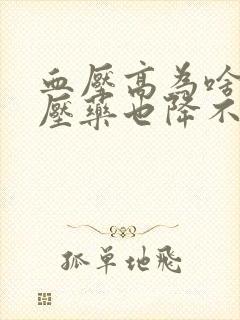 血壓高為啥
壓藥也降不
孤單地飛